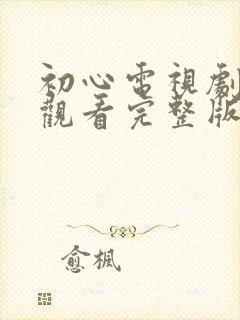 初心電視劇
觀看完整版
愈楓